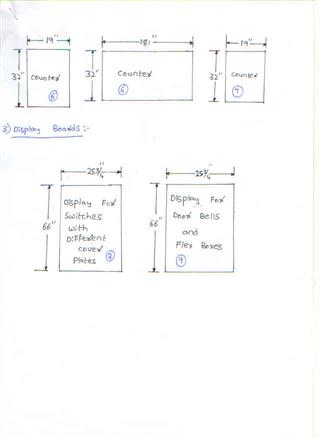 19"
181"
19"
32"
Counter
6
32"
Counter
6
32"
Counter
7
3) Display Boards:-
25¾"
25¾"
66"
Display For
Switches
with
Different
cover
Plates
8
66"
Display For
Door Bells
and
Flex Boxes
9